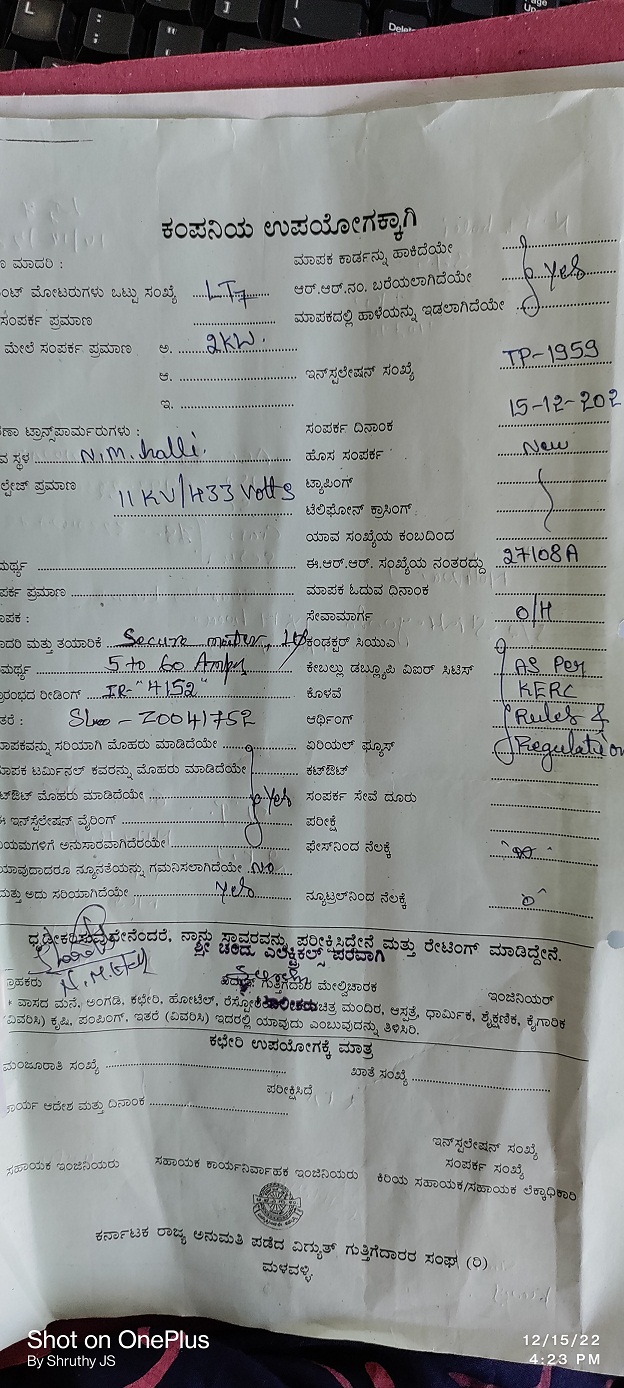 L
Delete
Page
Up
ಕಂಪನಿಯ ಉಪಯೋಗಕ್ಕಾಗಿ
ಣ ಮಾದರಿ :
ಮಾಪಕ ಕಾರ್ಡನ್ನು ಹಾಕಿದೆಯೇ
ಂಟ್ ಮೋಟರುಗಳು ಒಟ್ಟು ಸಂಖ್ಯೆ LT7
ಆರ್.ಆರ್.ನಂ. ಬರೆಯಲಾಗಿದೆಯೇ Yes
ಸಂಪರ್ಕ ಪ್ರಮಾಣ
ಮಾಪಕದಲ್ಲಿ ಹಾಳೆಯನ್ನು ಇಡಲಾಗಿದೆಯೇ
ಮೇಲೆ ಸಂಪರ್ಕ ಪ್ರಮಾಣ ಅ. 2KW.
ಆ.
ಇನ್‌ಸ್ಟಲೇಷನ್ ಸಂಖ್ಯೆ TP-1959
ಇ.
ಣಾ ಟ್ರಾನ್ಸ್‌ಪಾರ್ಮರುಗಳು :
ಸಂಪರ್ಕ ದಿನಾಂಕ 15-12-202
ವ ಸ್ಥಳ N.M.halli.
ಹೊಸ ಸಂಪರ್ಕ New
ಲ್ಟೇಜ್ ಪ್ರಮಾಣ 11 KV/433 Volts
ಟ್ಯಾಪಿಂಗ್
ಟೆಲಿಫೋನ್ ಕ್ರಾಸಿಂಗ್
ಯಾವ ಸಂಖ್ಯೆಯ ಕಂಬದಿಂದ
ಮರ್ಥ್ಯ
ಈ.ಆರ್.ಆರ್. ಸಂಖ್ಯೆಯ ನಂತರದ್ದು 27108A
ಪರ್ಕ ಪ್ರಮಾಣ
ಮಾಪಕ ಓದುವ ದಿನಾಂಕ
ಾಪಕ :
ಸೇವಾಮಾರ್ಗ O/H
ಾದರಿ ಮತ್ತು ತಯಾರಿಕೆ Secure meter, Ltd
ಕಂಡಕ್ಟರ್ ಸಿಯುಎ
ಮರ್ಥ್ಯ 5 to 60 Amps
ಕೇಬಲ್ಲು ಡಬ್ಲ್ಯೂಪಿ ವಿಐರ್ ಸಿಟಿಸ್ AS Per
ಾರಂಭದ ರೀಡಿಂಗ್ IR- "4152"
ಕೊಳವೆ KERC
ತರೆ : Sl no - Z0041752
ಆರ್ಥಿಂಗ್ Rules &
ಾಪಕವನ್ನು ಸರಿಯಾಗಿ ಮೊಹರು ಮಾಡಿದೆಯೇ
ಏರಿಯಲ್ ಫ್ಯೂಸ್ Regulation
ಾಪಕ ಟರ್ಮಿನಲ್ ಕವರನ್ನು ಮೊಹರು ಮಾಡಿದೆಯೇ
ಕಟ್‌ಔಟ್
ಟ್‌ಔಟ್ ಮೊಹರು ಮಾಡಿದೆಯೇ Yes
ಸಂಪರ್ಕ ಸೇವೆ ದೂರು
ಈ ಇನ್‌ಸ್ಟೆಲೇಷನ್ ವೈರಿಂಗ್
ಪರೀಕ್ಷೆ
ಿಯಮಗಳಿಗೆ ಅನುಸಾರವಾಗಿದೆರಯೇ
ಫೇಸ್‌ನಿಂದ ನೆಲಕ್ಕೆ
ಯಾವುದಾದರೂ ನ್ಯೂನತೆಯನ್ನು ಗಮನಿಸಲಾಗಿದೆಯೇ No
ಮತ್ತು ಅದು ಸರಿಯಾಗಿದೆಯೇ Yes
ನ್ಯೂಟ್ರಲ್‌ನಿಂದ ನೆಲಕ್ಕೆ
ಧೃಢೀಕರಿಸುವುದೇನೆಂದರೆ, ನಾನು ಸ್ಥಾವರವನ್ನು ಪರೀಕ್ಷಿಸಿದ್ದೇನೆ ಮತ್ತು ರೇಟಿಂಗ್ ಮಾಡಿದ್ದೇನೆ.
ಶ್ರೀ ಚಂದು ಎಲೆಕ್ಟ್ರಿಕಲ್ಸ್ ಪರವಾಗಿ
ಗ್ರಾಹಕರು
ಗುತ್ತಿಗೆದಾರ ಮೇಲ್ವಿಚಾರಕ
ಇಂಜಿನಿಯರ್
ಮಾಲೀಕರು
* ವಾಸದ ಮನೆ, ಅಂಗಡಿ, ಕಛೇರಿ, ಹೋಟೆಲ್, ಚಿತ್ರ ಮಂದಿರ, ಆಸ್ಪತ್ರೆ, ಧಾರ್ಮಿಕ, ಶೈಕ್ಷಣಿಕ, ಕೈಗಾರಿಕ
(ವಿವರಿಸಿ) ಕೃಷಿ, ಪಂಪಿಂಗ್, ಇತರೆ (ವಿವರಿಸಿ) ಇದರಲ್ಲಿ ಯಾವುದು ಎಂಬುವುದನ್ನು ತಿಳಿಸಿರಿ.
ಕಛೇರಿ ಉಪಯೋಗಕ್ಕೆ ಮಾತ್ರ
ಮಂಜೂರಾತಿ ಸಂಖ್ಯೆ
ಖಾತೆ ಸಂಖ್ಯೆ
ಪರೀಕ್ಷಿಸಿದೆ
ಕಾರ್ಯ ಆದೇಶ ಮತ್ತು ದಿನಾಂಕ
ಇನ್‌ಸ್ಟಲೇಷನ್ ಸಂಖ್ಯೆ
ಸಂಪರ್ಕ ಸಂಖ್ಯೆ
ಸಹಾಯಕ ಇಂಜಿನಿಯರು ಸಹಾಯಕ ಕಾರ್ಯನಿರ್ವಾಹಕ ಇಂಜಿನಿಯರು ಕಿರಿಯ ಸಹಾಯಕ/ಸಹಾಯಕ ಲೆಕ್ಕಾಧಿಕಾರಿ
ಕರ್ನಾಟಕ ರಾಜ್ಯ ಅನುಮತಿ ಪಡೆದ ವಿದ್ಯುತ್ ಗುತ್ತಿಗೆದಾರರ ಸಂಘ (ರಿ)
ಮಳವಳ್ಳಿ
Shot on OnePlus
By Shruthy JS
12/15/22
4:23 PM